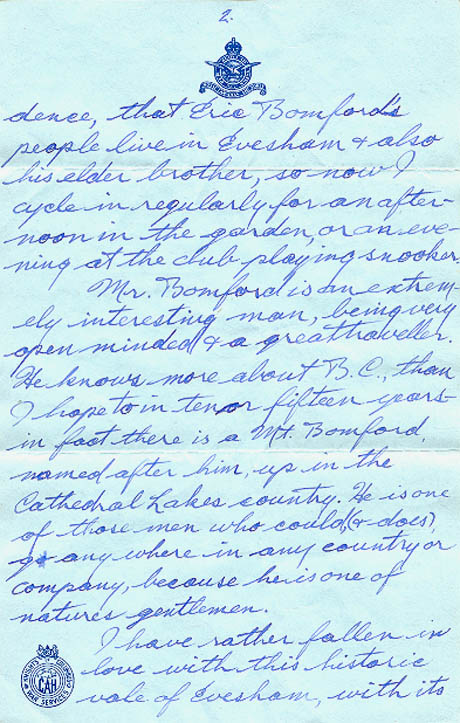 2.
dence, that Eric Bomford's
people live in Evesham & also
his elder brother, so now I
cycle in regularly for an after-
noon in the garden, or an eve-
ning at the club playing snooker.
Mr. Bomford is an extrem-
ely interesting man, being very
open minded & a great traveller.
He knows more about B.C., than
I hope to in ten or fifteen years-
in fact there is a Mt. Bomford,
named after him, up in the
Cathedral Lakes country. He is one
of those men who could, (& does),
go any where in any country or
company, because he is one of
natures gentlemen.
I have rather fallen in
love with this historic
vale of Evesham, with its
KNIGHTS OF COLUMBUS
CAH
WAR SERVICES